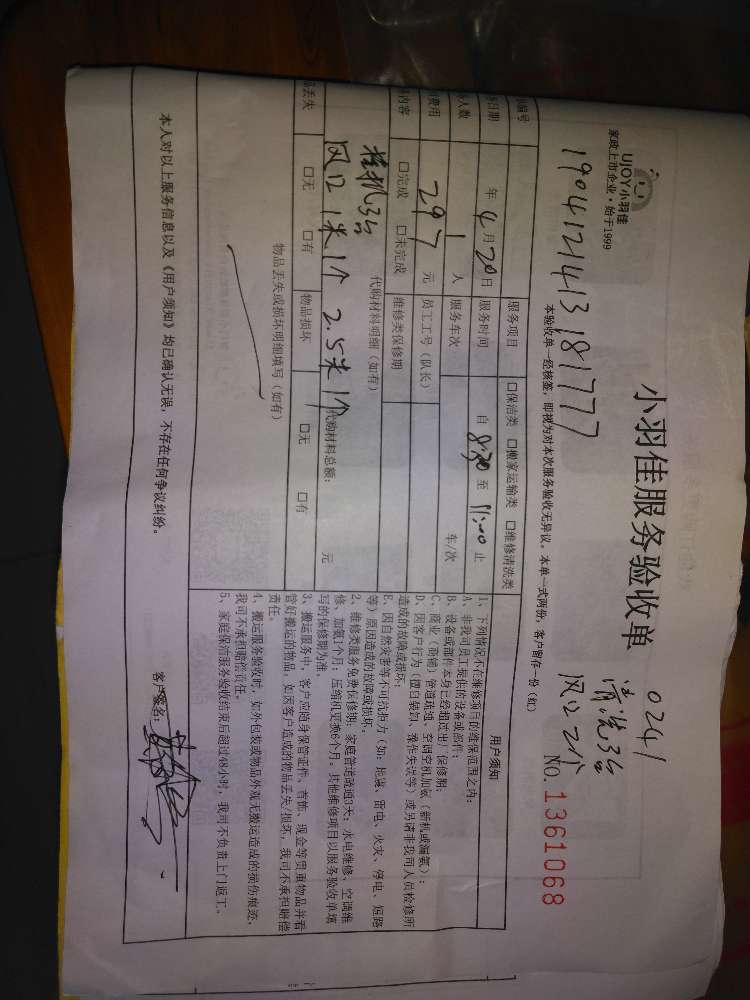 UJOY小羽佳
家政上市企业·始于1999
小羽佳服务验收单
0241
清洗3台
风口2个
NO.1361068
1904121413181777
本验收单一经核签，即视为对本次服务验收无异议。本单一式两份，客户留存一份（红）
编号
服务项目 □保洁类 □搬家运输类 □维修清洗类
日期 年4月20日 服务时间 自8:30至11:00止
人数 1人 服务车次 车/次
费用 297元 员工工号（队长）
内容 □完成 □未完成 维修类保修期
代购材料明细（如有）
挂机3台
风口1米1个 2.5米1个
代购材料总额： 元
品丢失 □无 □有 物品损坏 □无 □有
物品丢失或损坏明细填写（如有）
用户须知
1、下列情况不在维修项目的维保范围之内：
A、非我司员工提供的设备或部件；
B、设备或部件本身已经超过出厂保修期；
C、商业（商铺）管道疏通、空调空机加氨（新机或漏氨）；
D、因客户行为（擅自装卸、操作失误等）或另请非我司人员检修所
造成的故障或损坏；
E、因自然灾害等不可抗拒力（如：地震、雷电、火灾、停电、短路
等）原因造成的故障或损坏。
2、维修类服务免费保修期：家庭管道疏通3天；水电维修、空调维
修、加氨1个月；压缩机更换6个月。其他维修项目以服务验收单填
写的保修期为准。
3、搬运服务中，客户应随身保管证件、首饰、现金等贵重物品并看
管好搬运的物品，如因客户造成的物品丢失/损坏，我司不承担赔偿
责任。
4、搬运服务验收时，如外包装或物品外观无搬运造成的损伤痕迹，
我司不承担赔偿责任。
5、家庭保洁服务验收结束后超过48小时，我司不负责上门返工。
本人对以上服务信息以及《用户须知》均已确认无误，不存在任何争议纠纷。
客户签名：